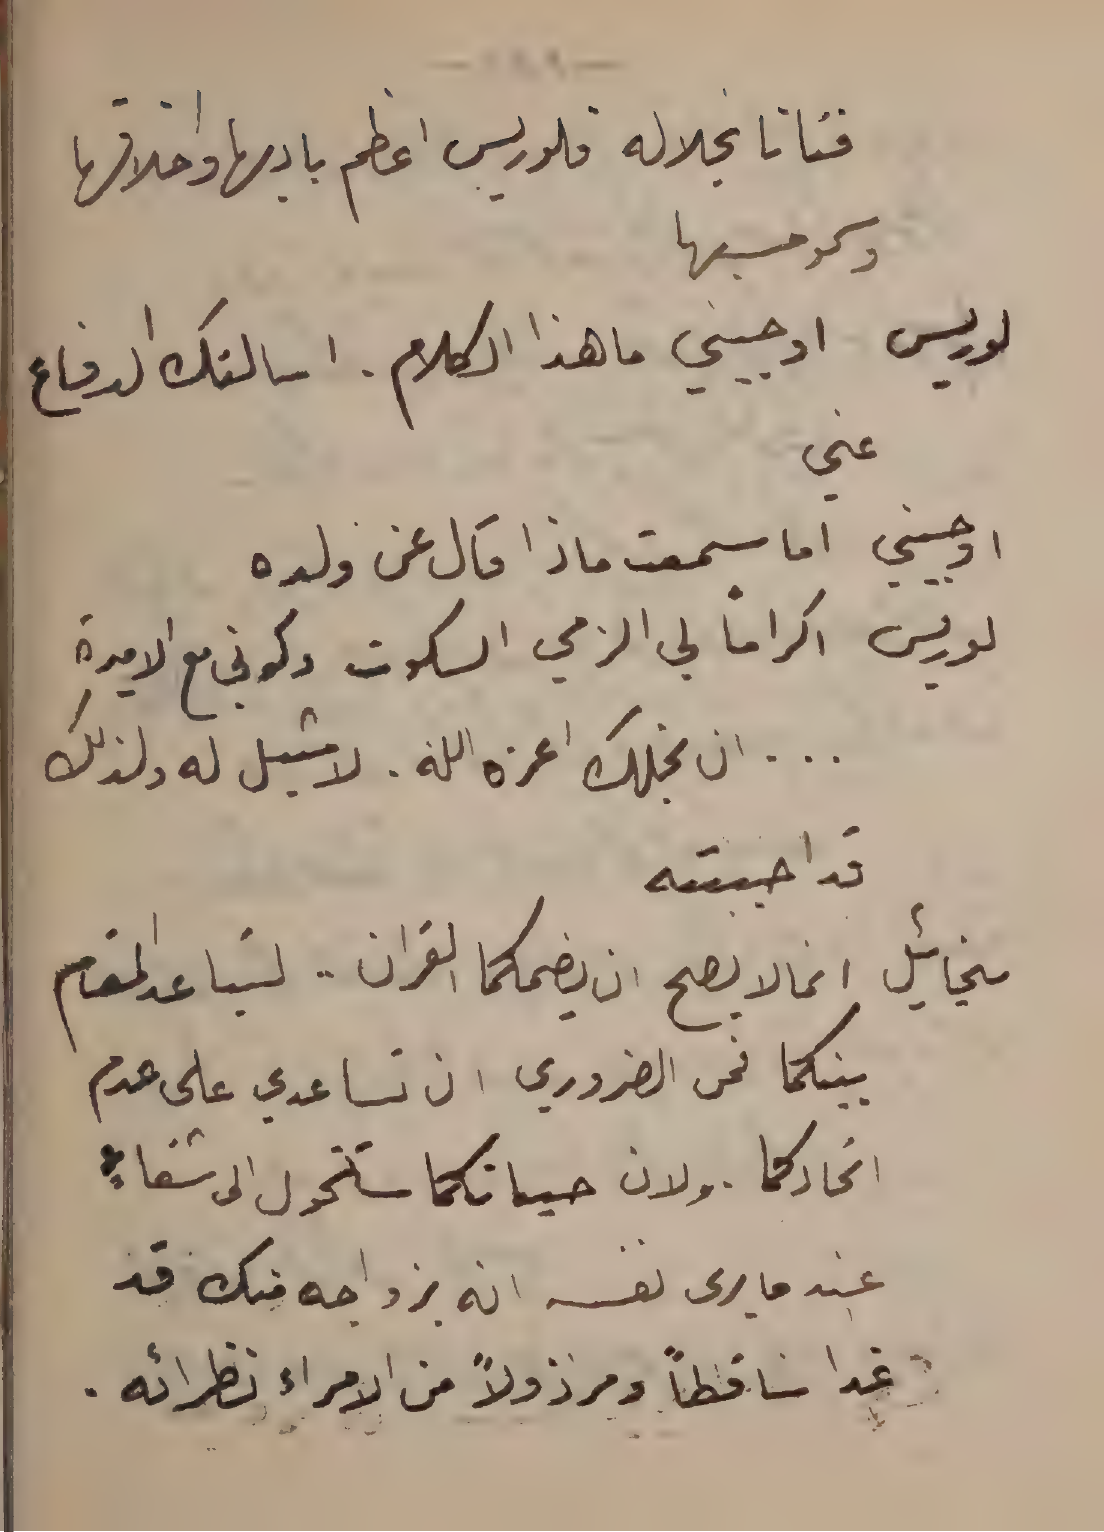 فتاتا نجلاله فلوريس اعظم بادبها واخلاقها
وسمو حسبها
لوريس اوجيني ما هذا الكلام . اسالتك الدفاع
عني
اوجيني اما سمعت ماذا قال عن ولده
لوريس اكراماً لي الزمي السكوت وكوني مع الاميرة
... ان نجلك اعزه الله . لا مثيل له ولذلك
قد احببته
ميخائيل انما لا يصح ان يضمكما القران .. لتباعد المقام
بينكما فمن الضروري ان تساعدي على عدم
اتحادكما . ولان حياتكما ستتحول الى شقاء
عندما يرى نفسه انه بزواجه منك قد
غدا ساقطاً ومرذولاً من الامراء نظرائه .